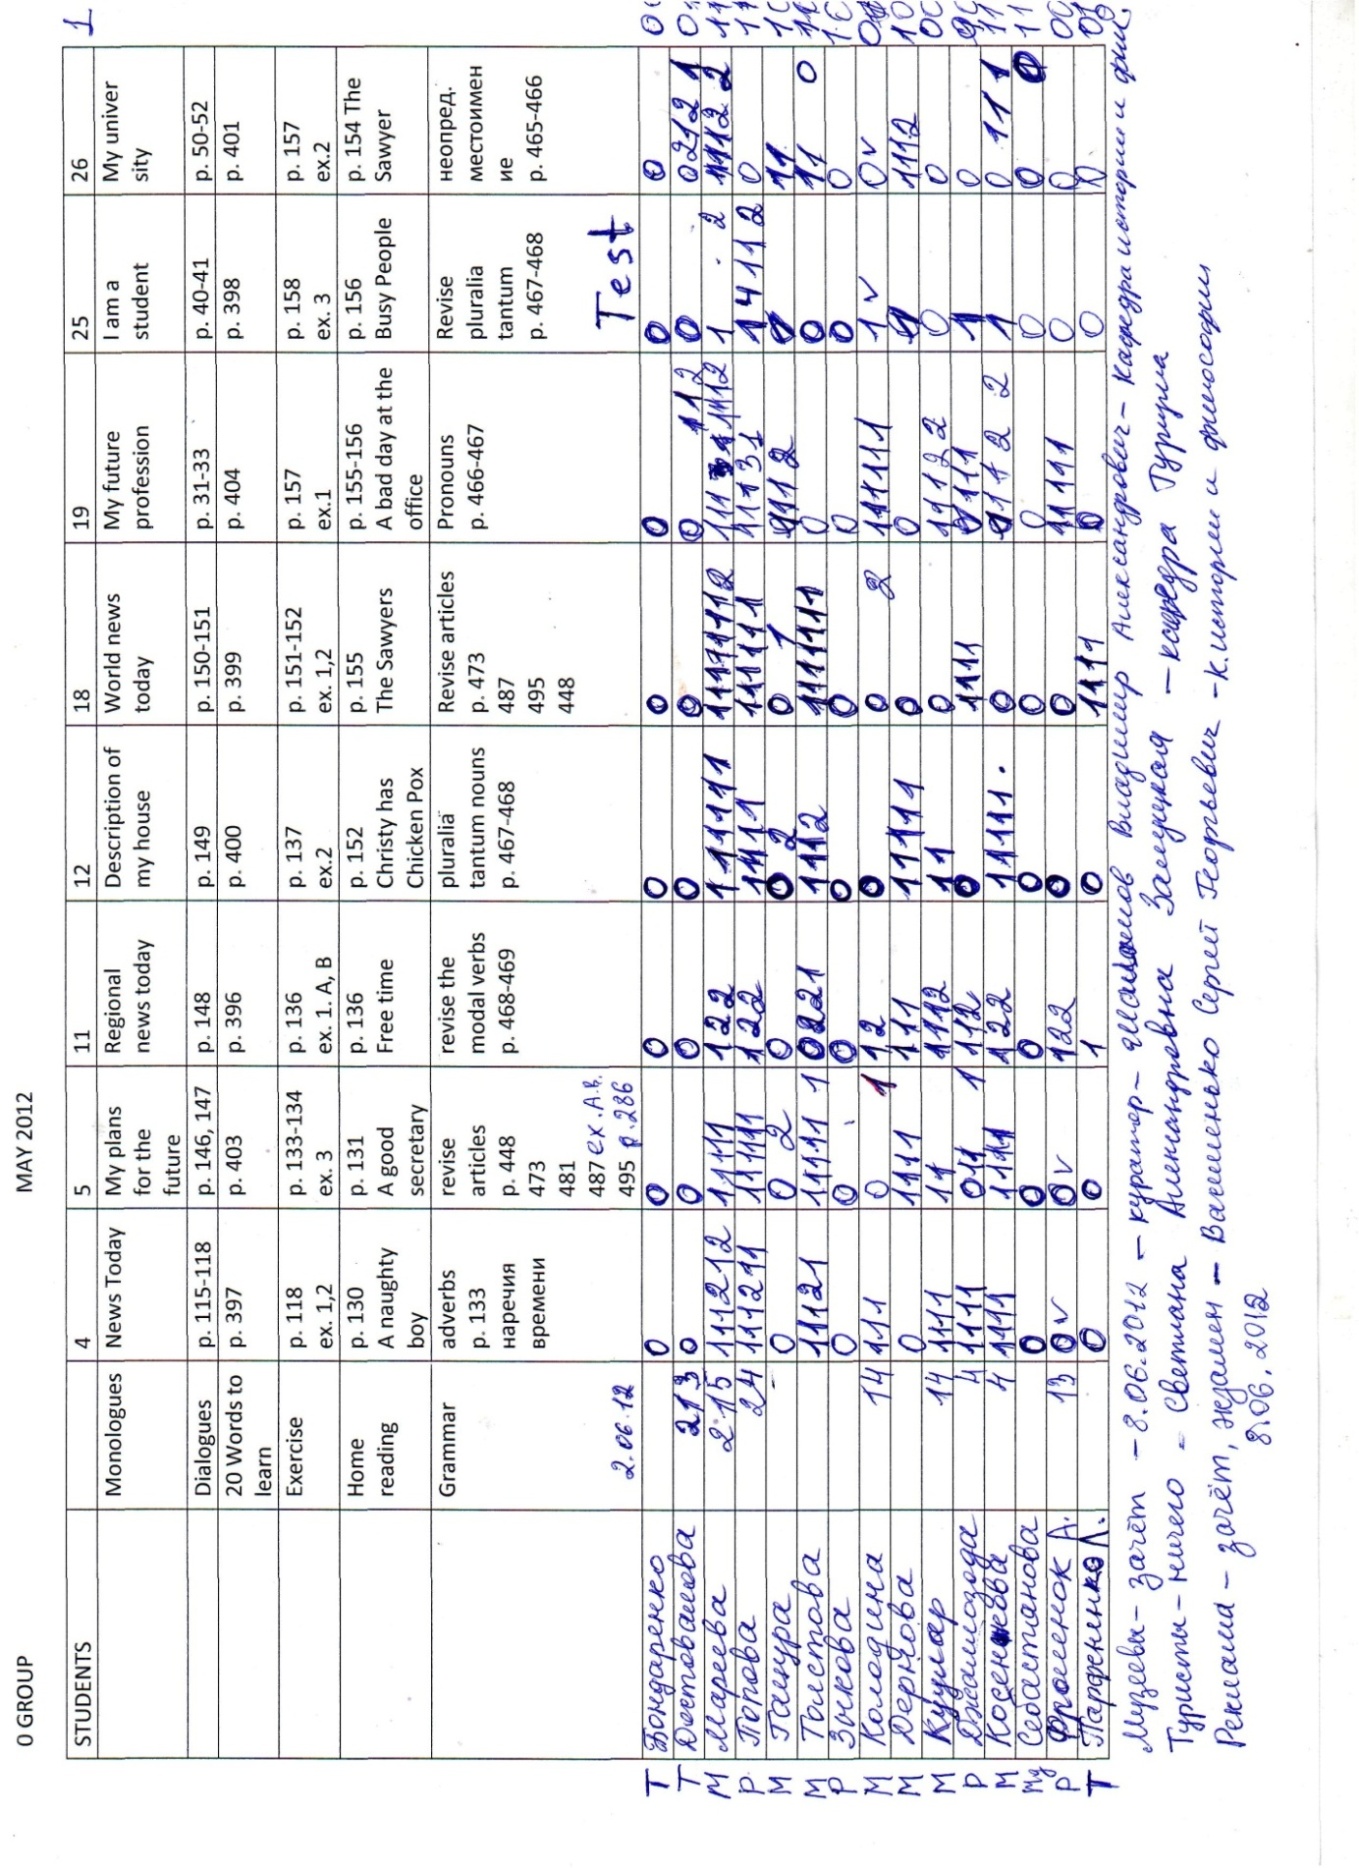 0 GROUP MAY 2012
STUDENTS 4 5 11 12 18 19 25 26 1
Monologues News Today My plans for the future Regional news today Description of my house World news today My future profession I am a student My univer sity
Dialogues p. 115-118 p. 146, 147 p. 148 p. 149 p. 150-151 p. 31-33 p. 40-41 p. 50-52
20 Words to learn p. 397 p. 403 p. 396 p. 400 p. 399 p. 404 p. 398 p. 401
Exercise p. 118 ex. 1,2 p. 133-134 ex. 3 p. 136 ex. 1. A, B p. 137 ex.2 p. 151-152 ex. 1,2 p. 157 ex.1 p. 158 ex. 3 p. 157 ex.2
Home reading p. 130 A naughty boy p. 131 A good secretary p. 136 Free time p. 152 Christy has Chicken Pox p. 155 The Sawyers p. 155-156 A bad day at the office p. 156 Busy People p. 154 The Sawyer
Grammar adverbs p. 133 наречия времени revise articles p. 448 473 481 487 495 ex. A.B. p. 286 revise the modal verbs p. 468-469 pluralia tantum nouns p. 467-468 Revise articles p. 473 487 495 448 Pronouns p. 466-467 Revise pluralia tantum p. 467-468 неопред. местоимен ие p. 465-466
2.06.12 Test
Т Бондаренко 0 0 0 0 0 0 0 0
Т 213 0 0 0 0 0 0 112 0 0212 1
М Мареева 2 15 111212 11111 122 111111 11111112
Р Попова 24 111211 11111 122 1111 111111 11131 1 4 1 1 1 2 0
М Гацура 0 0 2 0 0 2 0 1 9111 2 11
М Толстова 11121 1111 1 0221 1112 1111111 0 0 11 0
Р Зыкова 0 0 0 0 0 0 0 0
М Колодина 14 111 0 1 12 0 0 2 111111 1 v 0 v
М 0 1111 111 11111 0 0 1112
М Куулар 14 1111 11 1112 11 0 1112 2 0 0
Р Джамилозода 4 1111 011 1 112 0 1111 1 0
М 4 1111 1111 122 11111. 0 9111 2 2 1 0 11 1
Себастьянова 0 0 0 0 0 0 0 0 0
Р Фроленок А. 13 0 v 0 v 122 0 0 11111 0 0
Т Парфененко Л. 0 0 1 0 1111 0 0 0
Музеевы – зачёт – 8.06.2012 – куратор – Владимир Александрович – Кафедра истории и фил.
Туристы – ничего – Светлана Александровна – кафедра Туризма
Реклама – зачёт, экзамен – Василенько Сергей Георгьевич – к. истории и философии
8.06.2012